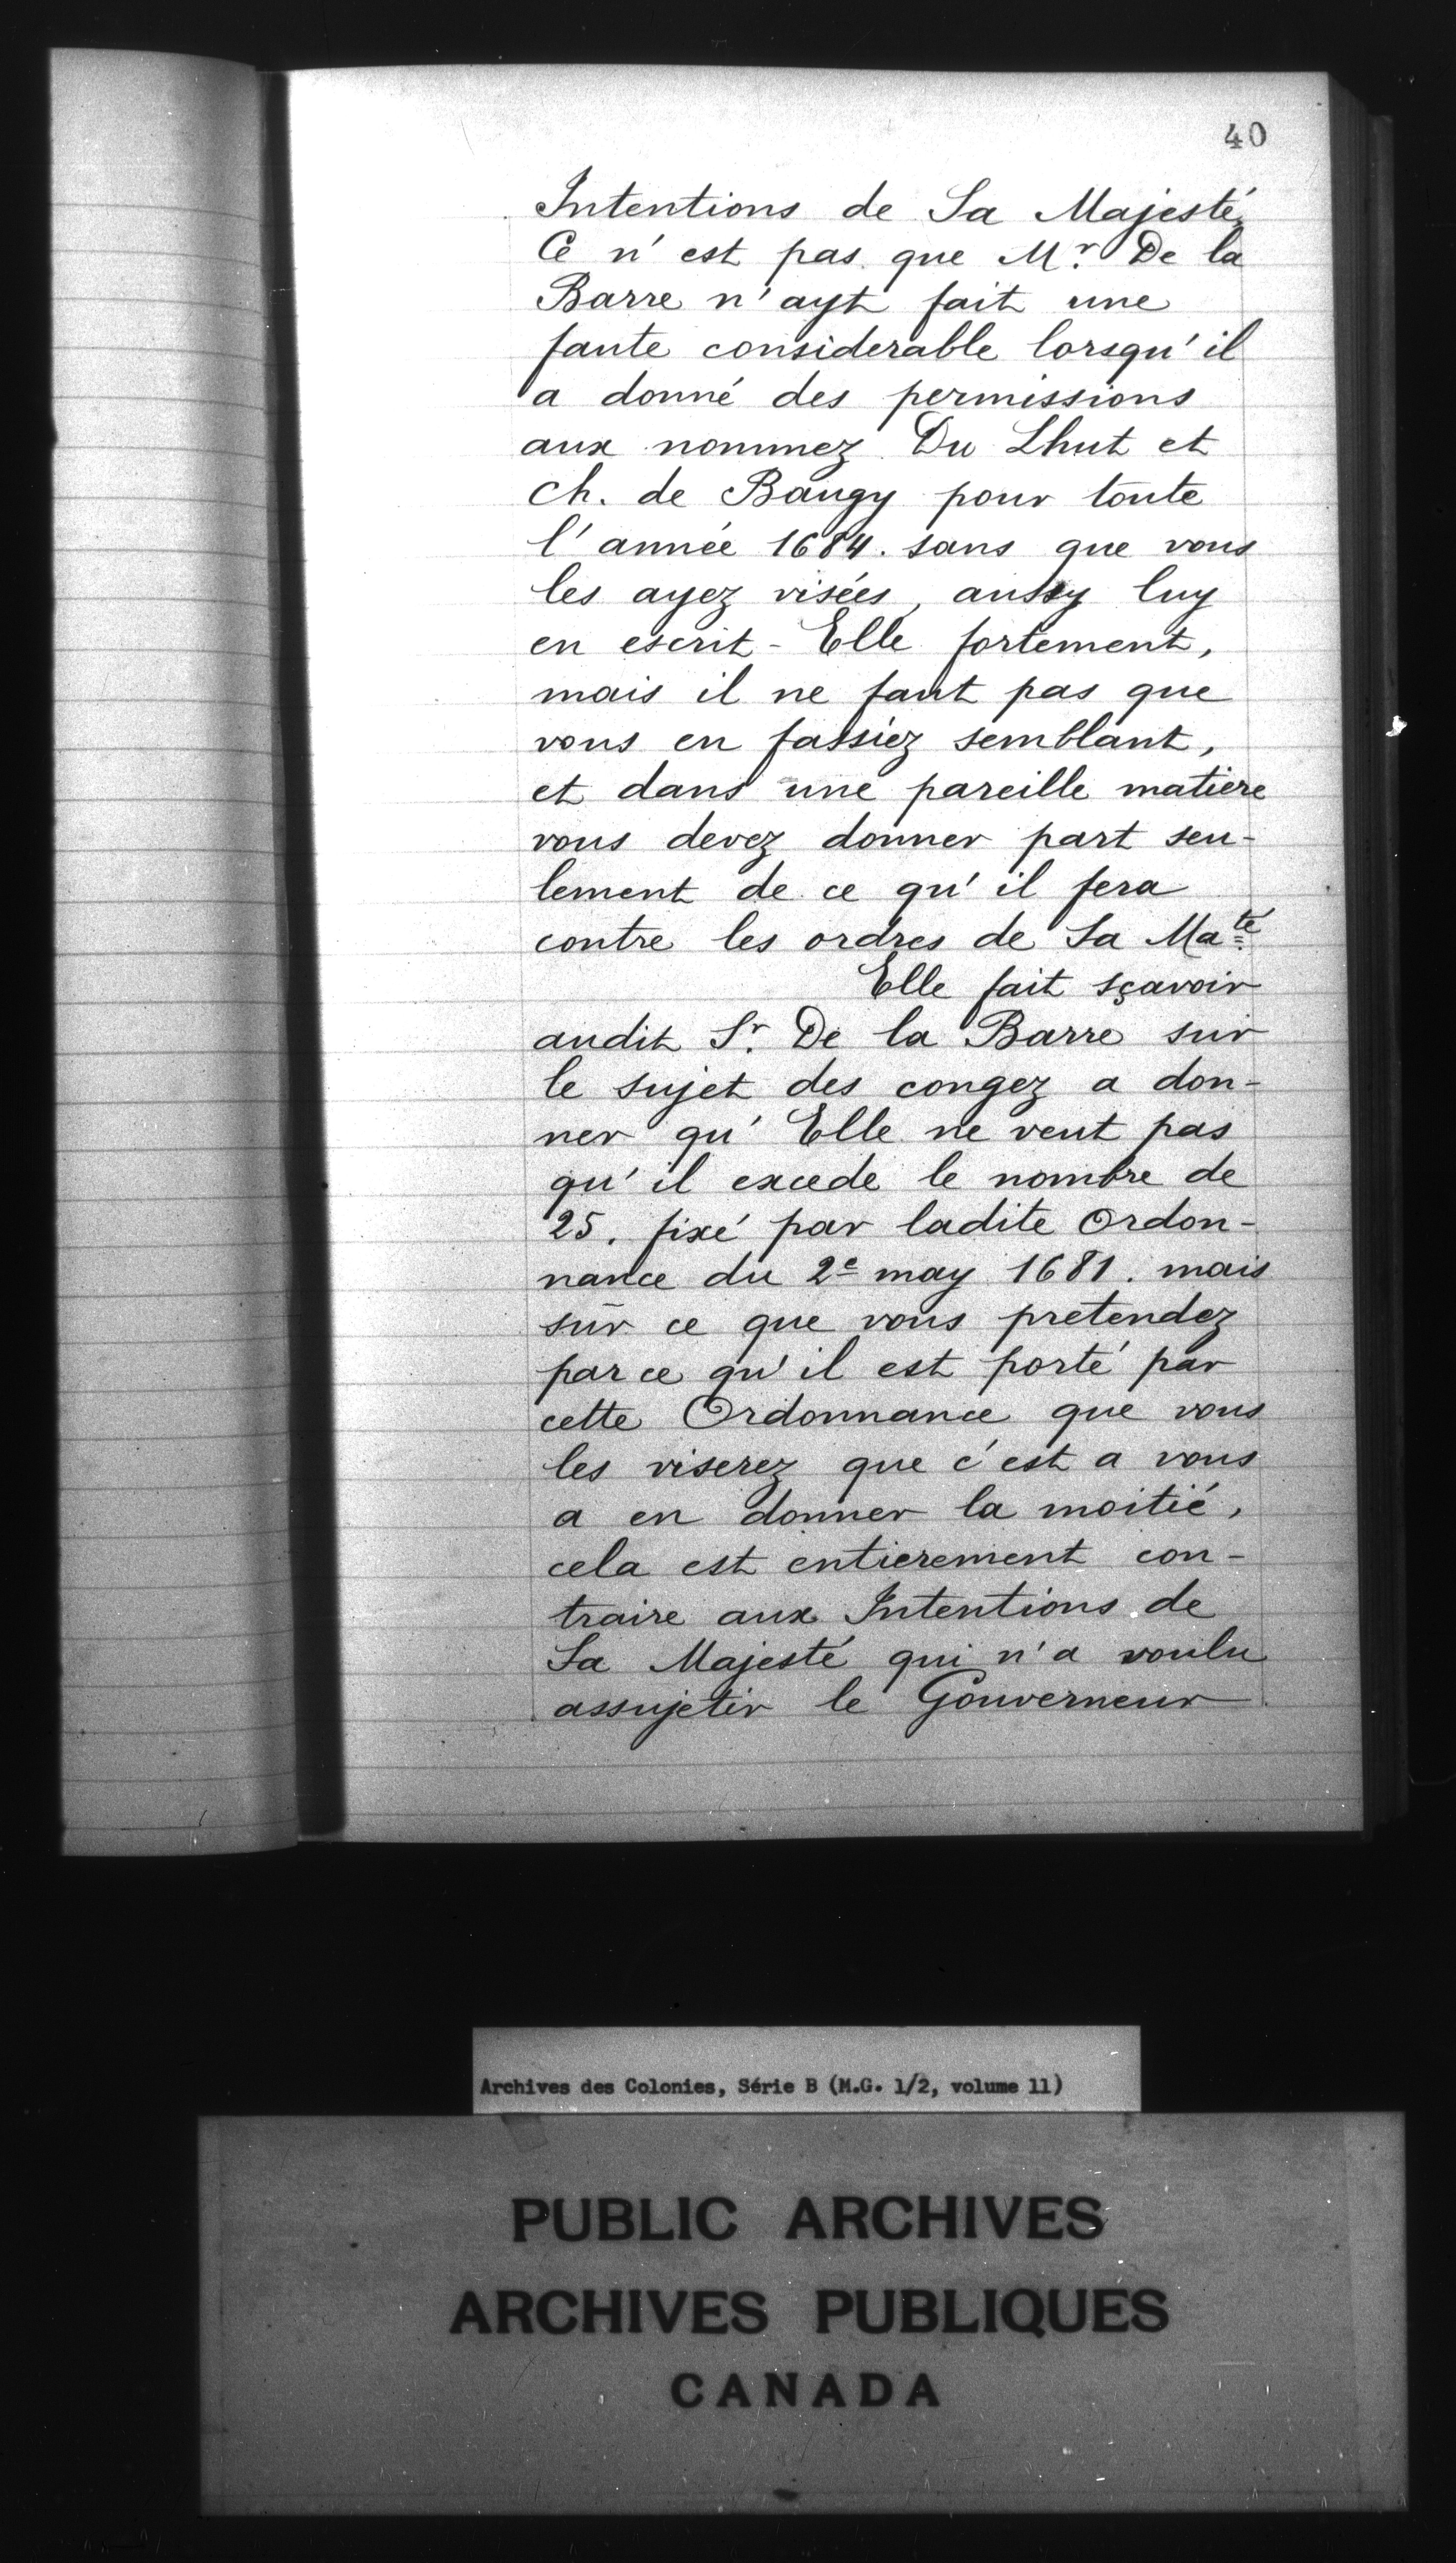 40
Intentions de Sa Majesté
Ce n'est pas que Mr. De la
Barre n'ayt fait une
faute considerable lorsqu'il
a donné des permissions
aux nommez Du Lhut et
ch. de Baugy pour toute
l'année 1684. sans que vous
les ayez visées, aussy luy
en escrit-Elle fortement,
mais il ne faut pas que
vous en fassiez semblant,
et dans une pareille matiere
vous devez donner part seu-
lement de ce qu'il fera
contre les ordres de Sa Maté
Elle fait sçavoir
audit Sr. De la Barre sur
le sujet des congez a don-
ner qu'Elle ne veut pas
qu'il excede le nombre de
25. fixé par ladite Ordon-
nance du 2e may 1681. mais
sur ce que vous pretendez
parce qu'il est porté par
cette Ordonnance que vous
les viserez que c'est a vous
a en donner la moitié,
cela est entierement con-
traire aux Intentions de
Sa Majesté qui n'a voulu
assujetir le Gouverneur
Archives des Colonies, Série B (M.G. 1/2, volume 11)
PUBLIC ARCHIVES
ARCHIVES PUBLIQUES
CANADA